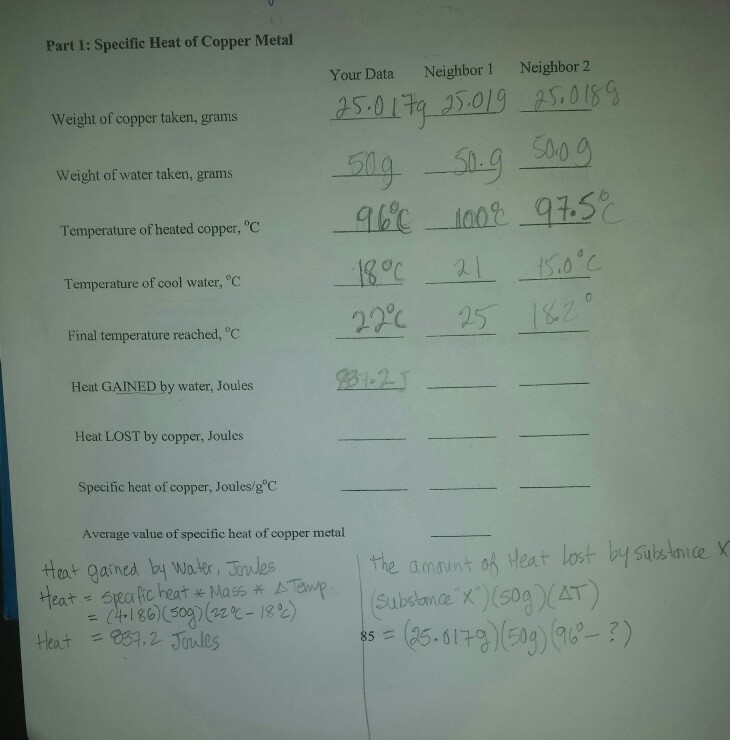 Part 1: Specific Heat of Copper Metal
Your Data Neighbor 1 Neighbor 2
Weight of copper taken, grams 25.017g 25.019 25.018g
Weight of water taken, grams 50g 50.g 50.0g
Temperature of heated copper, °C 96°C 100°C 97.5°C
Temperature of cool water, °C 18°C 21 15.0°C
Final temperature reached, °C 22°C 25 18.2°
Heat GAINED by water, Joules 837.2J
Heat LOST by copper, Joules
Specific heat of copper, Joules/g°C
Average value of specific heat of copper metal
Heat gained by Water, Joules
Heat = specific heat * Mass * Δ Temp.
= (4.186)(50g)(22°C - 18°C)
Heat = 837.2 Joules
the amount of Heat Lost by substance X
(Substance "X")(50g)(ΔT)
85 = (25.017g)(50g)(96° - ?)